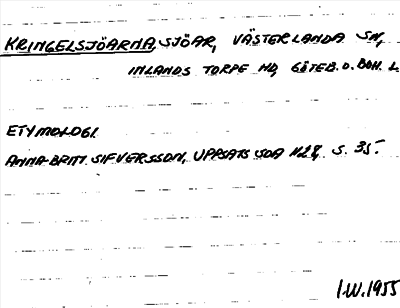 KRINGELSJÖARNA, SJÖAR, VÄSTERLANDA SN,
INLANDS TORPE HD, GÖTEB. O. BOH. L.
ETYMOLOGI.
ANNA-BRITT SIFVERSSON, UPPSATS SOA N28, S. 35.
I.W. 1955